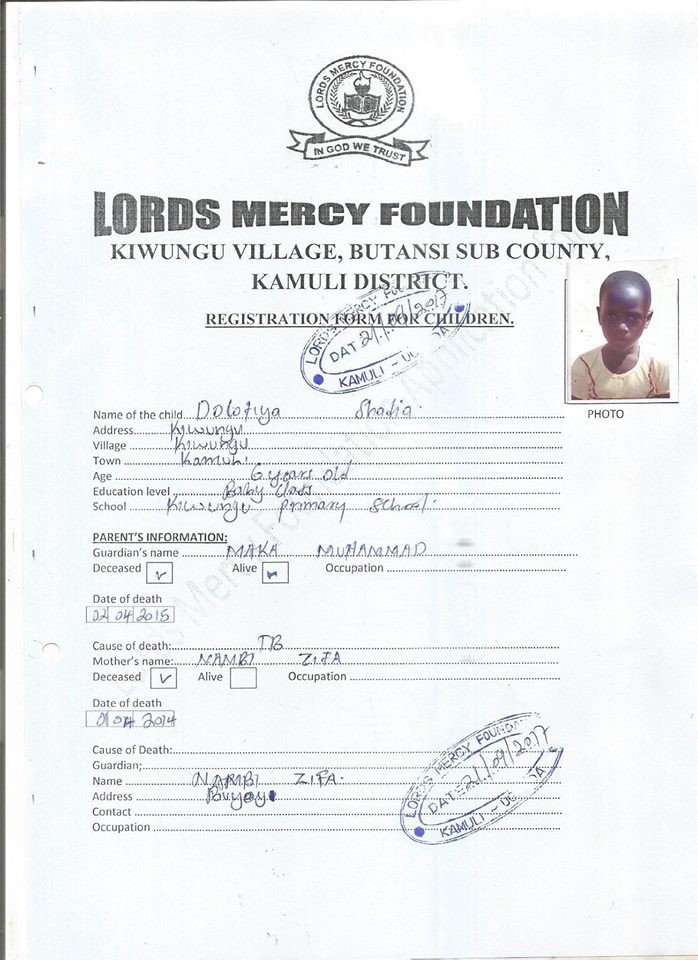 LORDS MERCY FOUNDATION
IN GOD WE TRUST
LORDS MERCY FOUNDATION
KIWUNGU VILLAGE, BUTANSI SUB COUNTY,
KAMULI DISTRICT.
REGISTRATION FORM FOR CHILDREN.
LORDS MERCY
DATE 21/09/2017
KAMULI –
PHOTO
Name of the child Shadia.
Address Kiwungu
Village Kiwungu
Town Kamuli
Age 6 years old
Education level Baby Class
School Kiwungu primary school.
PARENT'S INFORMATION:
Guardian's name MAKA MUHAMMAD
Deceased ✓ Alive Occupation
Date of death
02 04 2015
Cause of death: TB
Mother's name: NAMBI ZIFA
Deceased ✓ Alive Occupation
Date of death
2014
Cause of Death:
Guardian;
Name NAMBI ZIFA.
Address
Contact
Occupation
LORDS MERCY FOUNDA
DATE 21/09/2017
KAMULI –